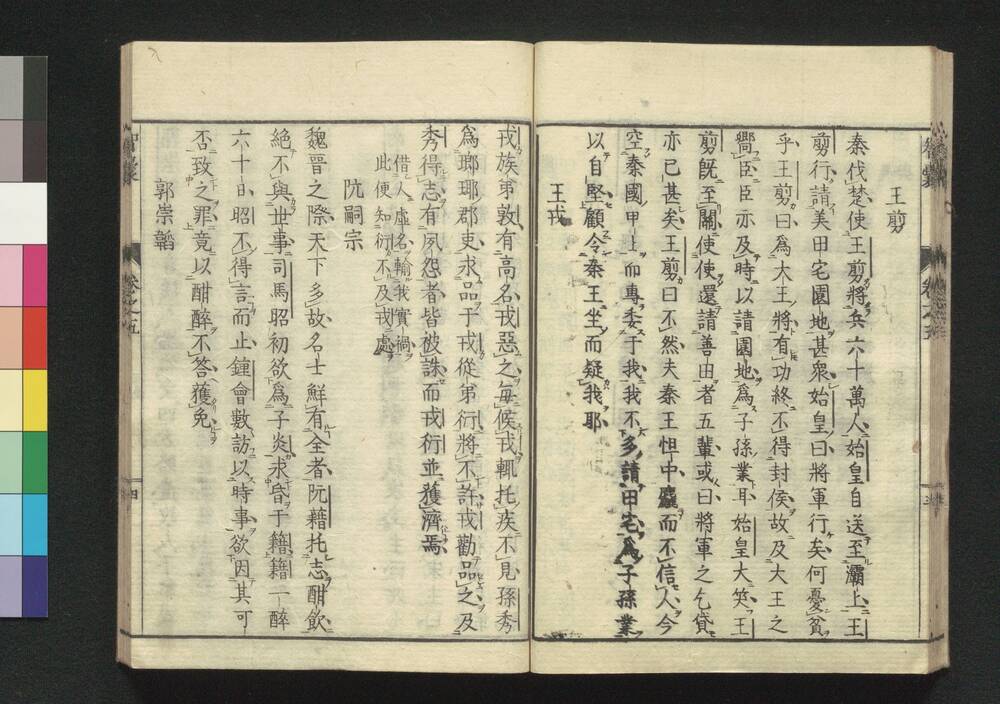 王剪
秦伐楚使王剪將兵六十萬人始皇自送至灞上王
剪行請美田宅園地甚衆始皇曰將軍行矣何憂貧
乎王剪曰爲大王將有功終不得封侯故及大王之
嚮臣臣亦及時以請園地爲子孫業耳始皇大笑王
剪既至關使使還請善田者五輩或曰將軍之乞貸
亦已甚矣王剪曰不然夫秦王怚中麤而不信人今
空秦國甲士而專委于我我不多請田宅爲子孫業
以自堅顧令秦王坐而疑我耶
王戎
戎族弟敦有高名戎惡之每候戎輒托疾不見孫秀
爲瑯琊郡吏求品于戎從弟衍將不許戎勸品之及
秀得志有夙怨者皆被誅而戎衍並獲濟焉
借人虛名輸我實禍
此便知衍不及戎處
阮嗣宗
魏晉之際天下多故名士鮮有全者阮籍托志酣飲
絕不與世事司馬昭初欲爲子炎求昏于籍籍一醉
六十日昭不得言而止鍾會數訪以時事欲因其可
否致之罪竟以酣醉不答獲免
郭崇韜
卷之五
四